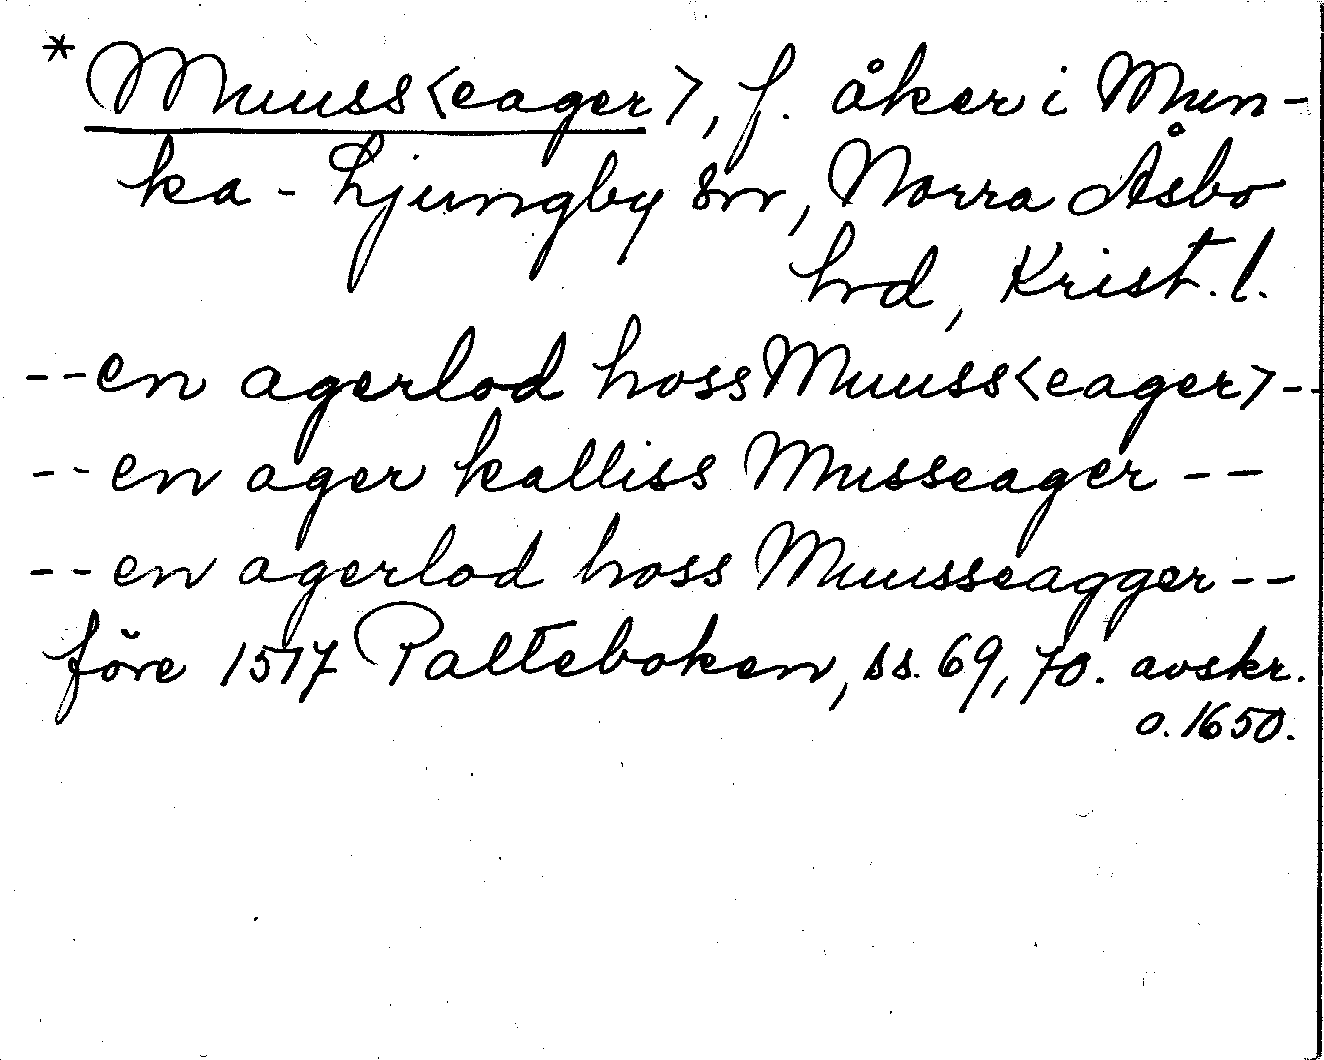 * Muuss<eager>, f. åker i Mun-
ka-Ljungby sn, Norra Åsbo
hd, Krist. l.
--en agerlod hoss Muuss<eager>--
--en ager kalliss Musseager--
--en agerlod hoss Muusseagger--
före 1517 Palteboken, ss. 69, 70. avskr.
o. 1650.